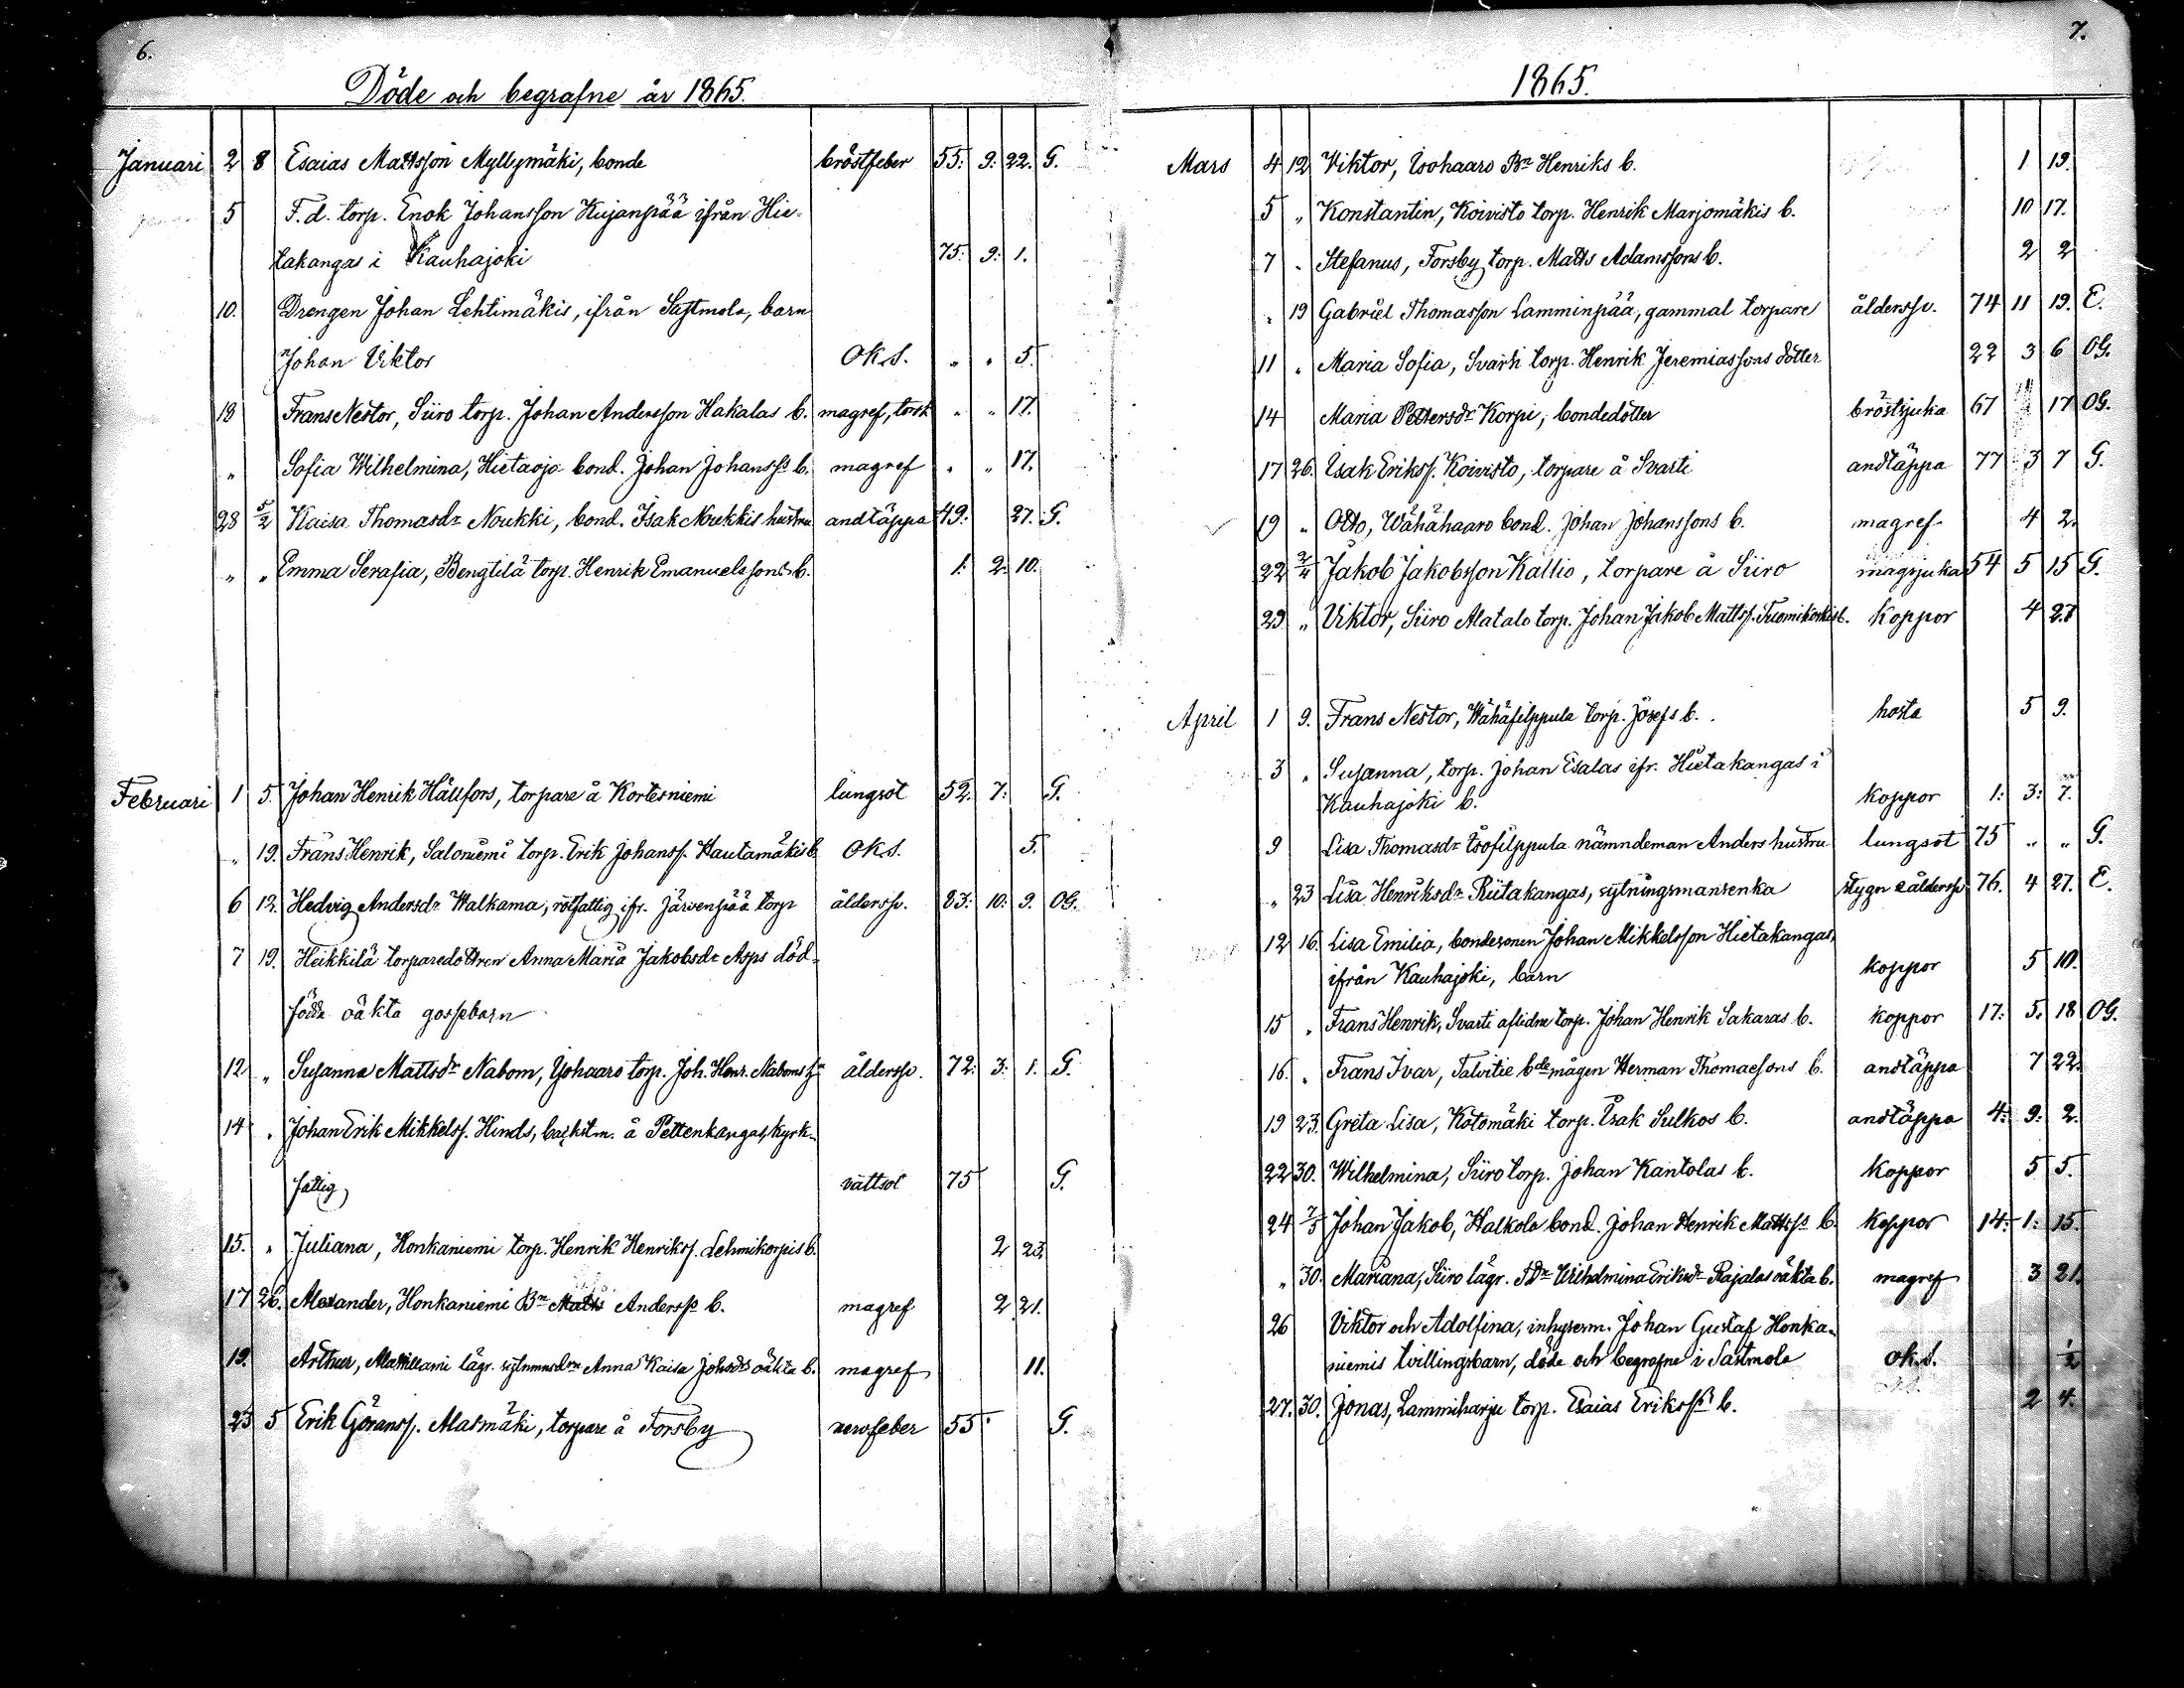 6.
Döde och begrafne år 1865.
Januari 2 8 Esaias Mattsson Myllymäki, bonde bröstfeber 55: 9: 22. G.
5 F. d. torp. Enok Johansson Kujanpää ifrån Hie-
takangas i Kauhajoki 75: 9: 1.
10. Drengen Johan Lehtimäkis, ifrån Sastmola, barn
Johan Viktor Ok. S. " " 5.
18 Frans Nestor, Siiro torp. Johan Andersson Hakalas b. magref, torsk " " 17.
" Sofia Wilhelmina, Hietaoja bond. Johan Johanss. b. magref " " 17.
28 5/2 Kaisa Thomasdr Noukki, bond. Isak Noukkis hustru andtäppa 49: 27. G.
" " Emma Serafia, Bengtilä torp. Henrik Emanuelssons b. 1. 2. 10.
Februari 1 5. Johan Henrik Hällfors, torpare å Kortesniemi lungsot 52. 7: G.
" 19. Frans Henrik, Saloniemi torp. Erik Johanss. Hautamäkis b. Ok. S. 5.
6 12. Hedvig Andersdr Walkama, rotfattig ifr. Järvenpää torp åldersv. 83: 10. 9. OG.
7 19. Heikkilä torparedottren Anna Maria Jakobsdr Asps död-
födda oäkta gossebarn
12 " Susanna Mattsdr Nabom, Ysohaaro torp. Joh. Henr. Naboms åldersv. 72: 3: 1. G.
14 " Johan Erik Mikkelss. Hinds, backstm. å Pettenkangas, kyrk-
fattig vattsot 75 G.
15. " Juliana, Honkaniemi torp. Henrik Henrikss. Lehmikorpis b. 2 23.
17 26. Alexander, Honkaniemi Bn Matts Anderss. b. magref 2 21.
19. Arthur, lägr. Anna Kaisa Johsdrs oäkta b. magref 11.
25 5 Erik Göranss. Alasmäki, torpare å Forsby nervfeber 55. G.
7.
1865.
Mars 4 12 Viktor, Isohaaro Bn Henriks b. 1 19.
5 " Konstantin, Koivisto torp. Henrik Marjomäkis b. 10 17.
7 " Stefanus, Forsby torp. Matts Adamssons b. 2 2
" 19 Gabriel Thomasson Lamminpää, gammal torpare åldersv. 74 11 19. E.
11 " Maria Sofia, Svarti torp. Henrik Jeremiassons dotter 22 3 6 OG.
14 Maria Pettersdr Korpi, bondedotter bröstsjuka 67 17 OG.
17 26. Isak Erikss. Koivisto, torpare å Svarti andtäppa 77 3 7 G.
19 " Otto, Wähähaaro bond. Johan Johanssons b. magref 4 2.
22 2/4 Jakob Jakobsson Kallio, torpare å Siiro magsjuka 54 5 15 G.
29 " Viktor, Siiro Alatalo torp. Johan Jakob Mattss. Tuomikoskis b. koppor 4 27
April 1 9. Frans Nestor, Wähäfilppula torp. Josefs b. hosta 5 9.
3 " Susanna, torp. Johan Esalas ifr. Hietakangas i
Kauhajoki b. koppor 1: 3: 7.
9 Lisa Thomasdr Isofilppula nämndeman Anders hustru lungsot 75 " " G.
" 23 Lisa Henriksdr Riitakangas, sytningsmansenka stygn e åldersv. 76. 4 27. E.
12 16. Lisa Emilia, bondesonen Johan Mikkelsson Hietakangas,
ifrån Kauhajoki, barn koppor 5 10.
15 " Frans Henrik, Svarti aflidne torp. Johan Henrik Sakaras b. koppor 17: 5. 18 OG.
16. " Frans Ivar, Talvitie bde mågen Herman Thomassons b. andtäppa 7 22.
19 23. Greta Lisa, Kotomäki torp. Isak Sulkos b. andtäppa 4: 9: 2.
22 30. Wilhelmina, Siiro torp. Johan Kantolas b. koppor 5 5.
24 7/5 Johan Jakob, Halkola bond. Johan Henrik Mattss. b. koppor 14: 1: 15.
" 30. Mariana, Siiro lägr. Wilhelmina Eriksdr Rajalas oäkta b. magref 3 21.
26 Viktor och Adolfina, inhysesm. Johan Gustaf Honka-
niemis tvillingsbarn, döde och begrafne i Sastmola ok. S. 1/2
27. 30. Jonas, Lammiharju torp. Esaias Erikss. b. 2 4.